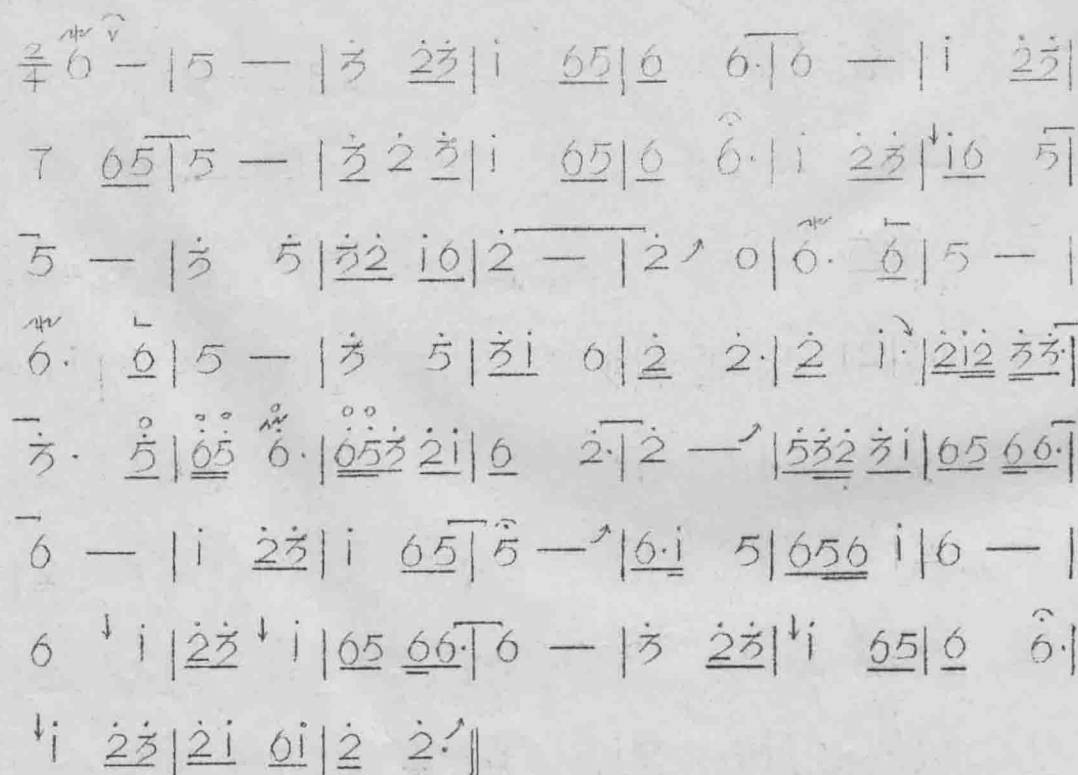 2/4 6 — | 5 — | 3̇ 2̇3̇ | 1̇ 65 | 6 6· | 6 — | 1̇ 2̇3̇ |
7 65 | 5 — | 3̇ 2̇ 3̇ | 1̇ 65 | 6 6· | 1̇ 2̇3̇ | ↓1̇6 5 |
5 — | 3̇ 5̇ | 3̇2̇ 1̇6 | 2̇ — | 2̇ 0 | 6· 6 | 5 — |
6· 6 | 5 — | 3̇ 5̇ | 3̇1̇ 6 | 2̇ 2̇· | 2̇ 1̇· | 2̇1̇2̇ 3̇3̇· |
3̇· 5̇ | 6̇5̇ 6̇· | 6̇5̇3̇ 2̇1̇ | 6 2̇· | 2̇ — | 5̇3̇2̇ 3̇1̇ | 65 66· |
6 — | 1̇ 2̇3̇ | 1̇ 65 | 5 — | 6·1̇ 5 | 656 1̇ | 6 — |
6 ↓1̇ | 2̇3̇ ↓1̇ | 65 66· | 6 — | 3̇ 2̇3̇ | ↓1̇ 65 | 6 6· |
↓1̇ 2̇3̇ | 2̇1̇ 61̇ | 2̇ 2̇· ‖